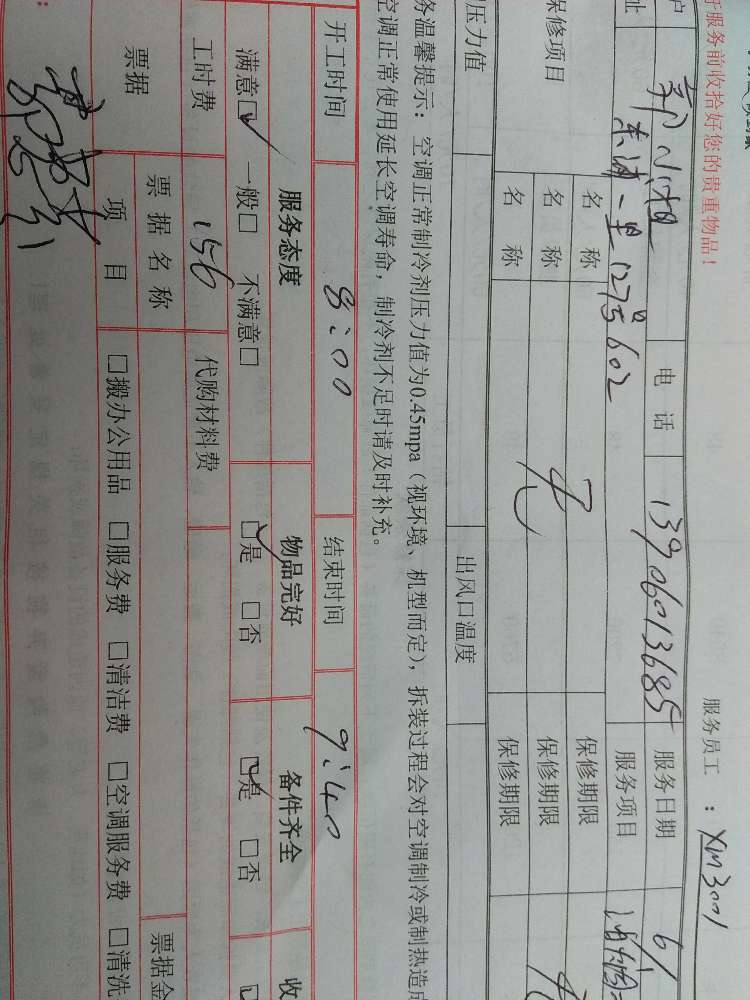 服务前收拾好您的贵重物品！
服务员工：XM3001
户 郭小姐 电话 13906013685 服务日期 6/
址 东浦一里127号602 服务项目
保修项目 名称 保修期限
名称 无 保修期限
名称 保修期限
压力值 出风口温度
务温馨提示：空调正常制冷剂压力值为0.45mpa（视环境、机型而定），拆装过程会对空调制冷或制热造成
空调正常使用延长空调寿命，制冷剂不足时请及时补充。
开工时间 8:00 结束时间 9:40
服务态度 物品完好 备件齐全 收
满意□ 一般□ 不满意□ □是 □否 □是 □否
工时费 156 代购材料费
票据 票据名称 票据金
项目 □搬办公用品 □服务费 □清洁费 □空调服务费 □清洗